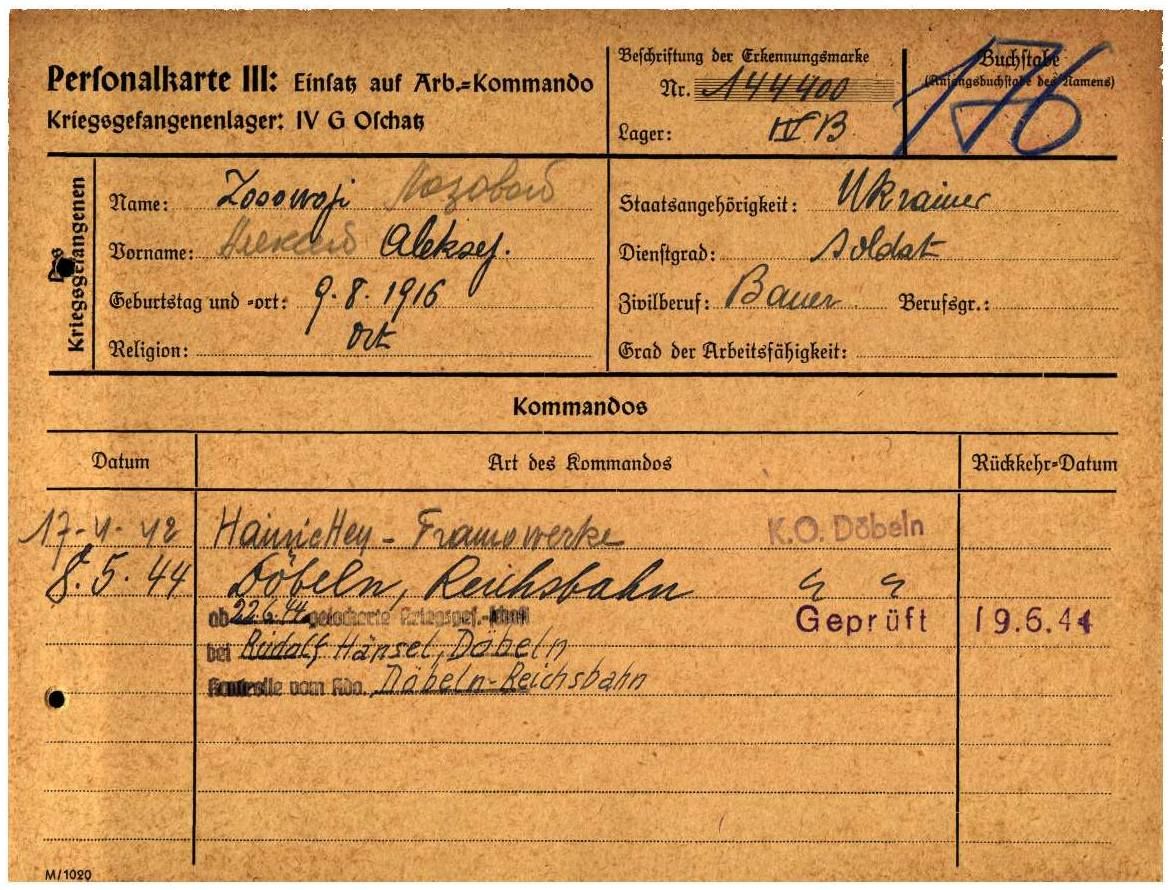 Personalkarte III: Einsatz auf Arb.=Kommando
Kriegsgefangenenlager: IV G Oschatz
Beschriftung der Erkennungsmarke
Nr. 144400
Lager: IV B
Buchstabe
(Anfangsbuchstabe des Namens)
176
Des Kriegsgefangenen
Name: Losowoji Лозовой
Vorname: Алексей Aleksej.
Geburtstag und -ort: 9.8.1916
Religion: ort
Staatsangehörigkeit: Ukrainer
Dienstgrad: Soldat
Zivilberuf: Bauer Berufsgr.:
Grad der Arbeitsfähigkeit:
Kommandos
Datum Art des Kommandos Rückkehr=Datum
17-4-42 Hainichen - Framowerke K.O. Döbeln
8.5.44 Döbeln, Reichsbahn
ab 22.6.44 gelockerte Kriegsgef.- Geprüft 19.6.44
bei Rudolf Hänsel, Döbeln
Kontrolle vom Kdo. Döbeln-Reichsbahn
M/1020